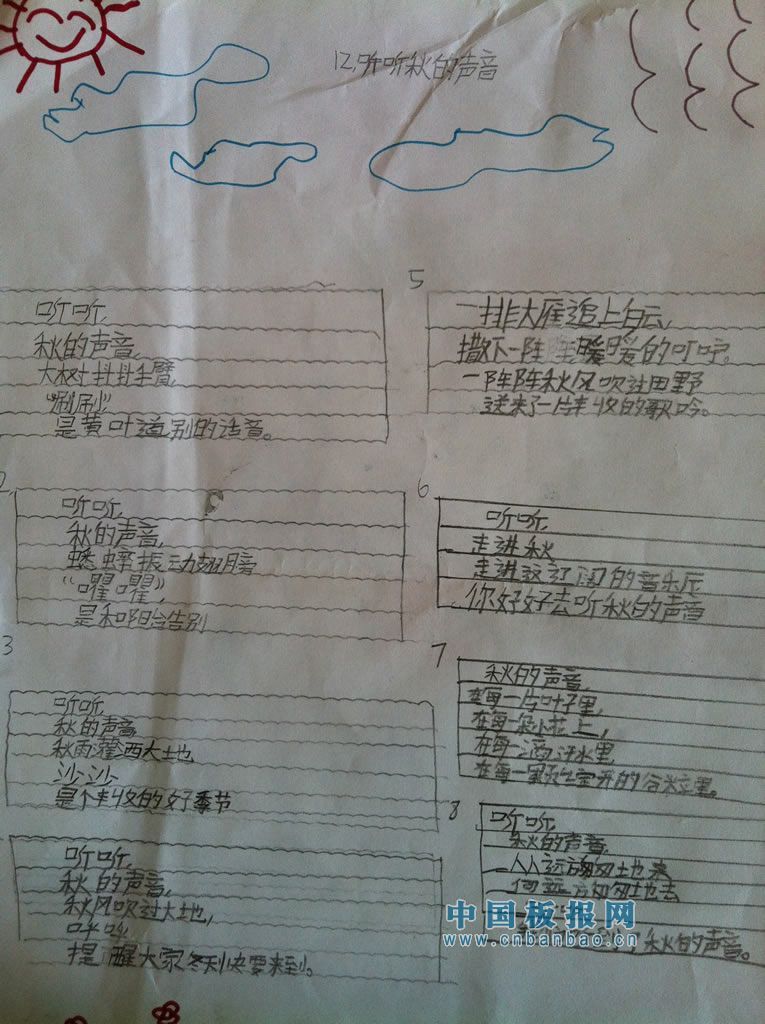 12.听听秋的声音
听听,
秋的声音,
大树抖抖手臂,
“唰唰”
是黄叶道别的话音。
2
听听,
秋的声音,
蟋蟀振动翅膀
“嚁嚁”,
是和阳台告别
3
听听,
秋的声音,
秋雨灌洒大地,
沙沙
是个丰收的好季节
听听,
秋的声音,
秋风吹过大地,
呼呼
提醒大家冬天快要来到。
5
一排大雁追上白云,
撒下一阵阵暖暖的叮咛。
一阵阵秋风吹过田野
送来了一片丰收的歌吟。
6
听听,
走进秋
走进这辽阔的音乐厅
你好好去听秋的声音
7
秋的声音,
在每一片叶子里,
在每一朵小花上,
在每一滴汗水里
在每一颗绽开的谷粒里。
8
听听,
秋的声音,
从远方匆匆地来
向远方匆匆地去
秋的声音。
中国板报网
www.cnbanbao.cn